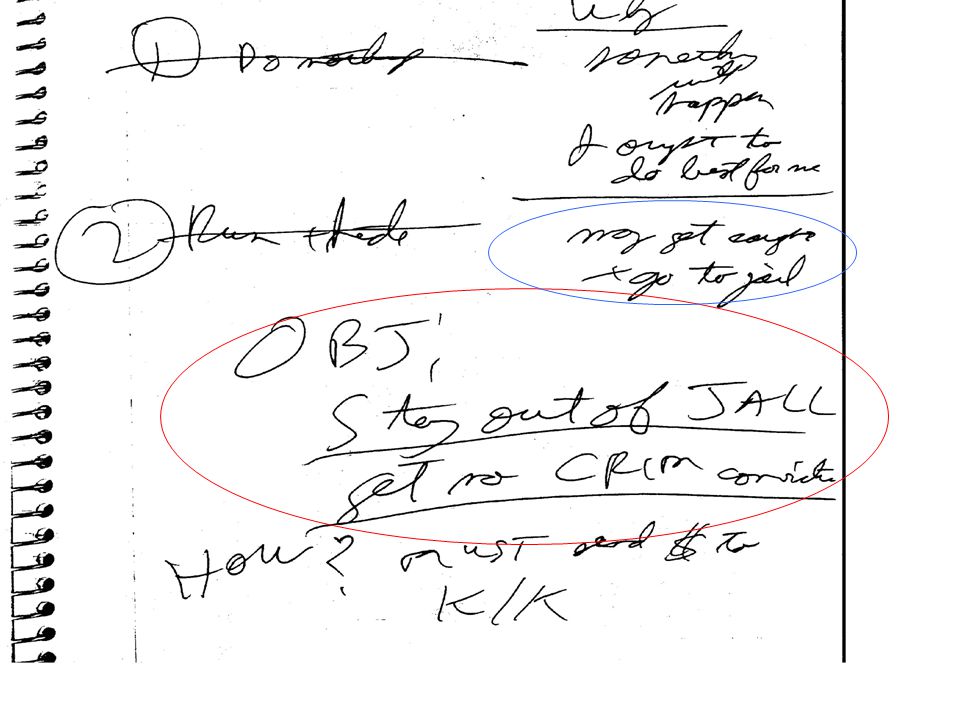 Why
① Do nothing
something
will
happen
I ought to
do best for me
② Run + hide
may get caught
+ go to jail
OBJ:
Stay out of JALL
get no CRIM convictn
How? MUST send $ to
K/K